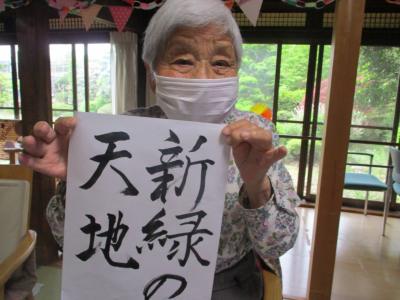 新緑の
天地